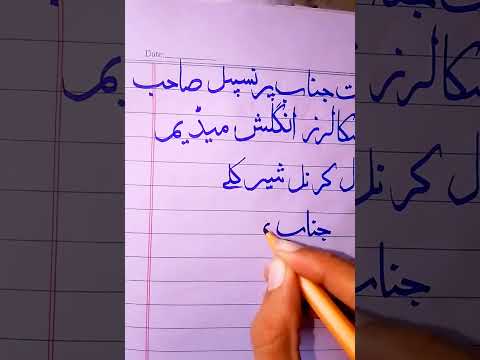 Date:
ت جناب پرنسپل صاحب
سکالرز انگلش میڈیم
ل کرنل شیر کلے
جناب،
جناب